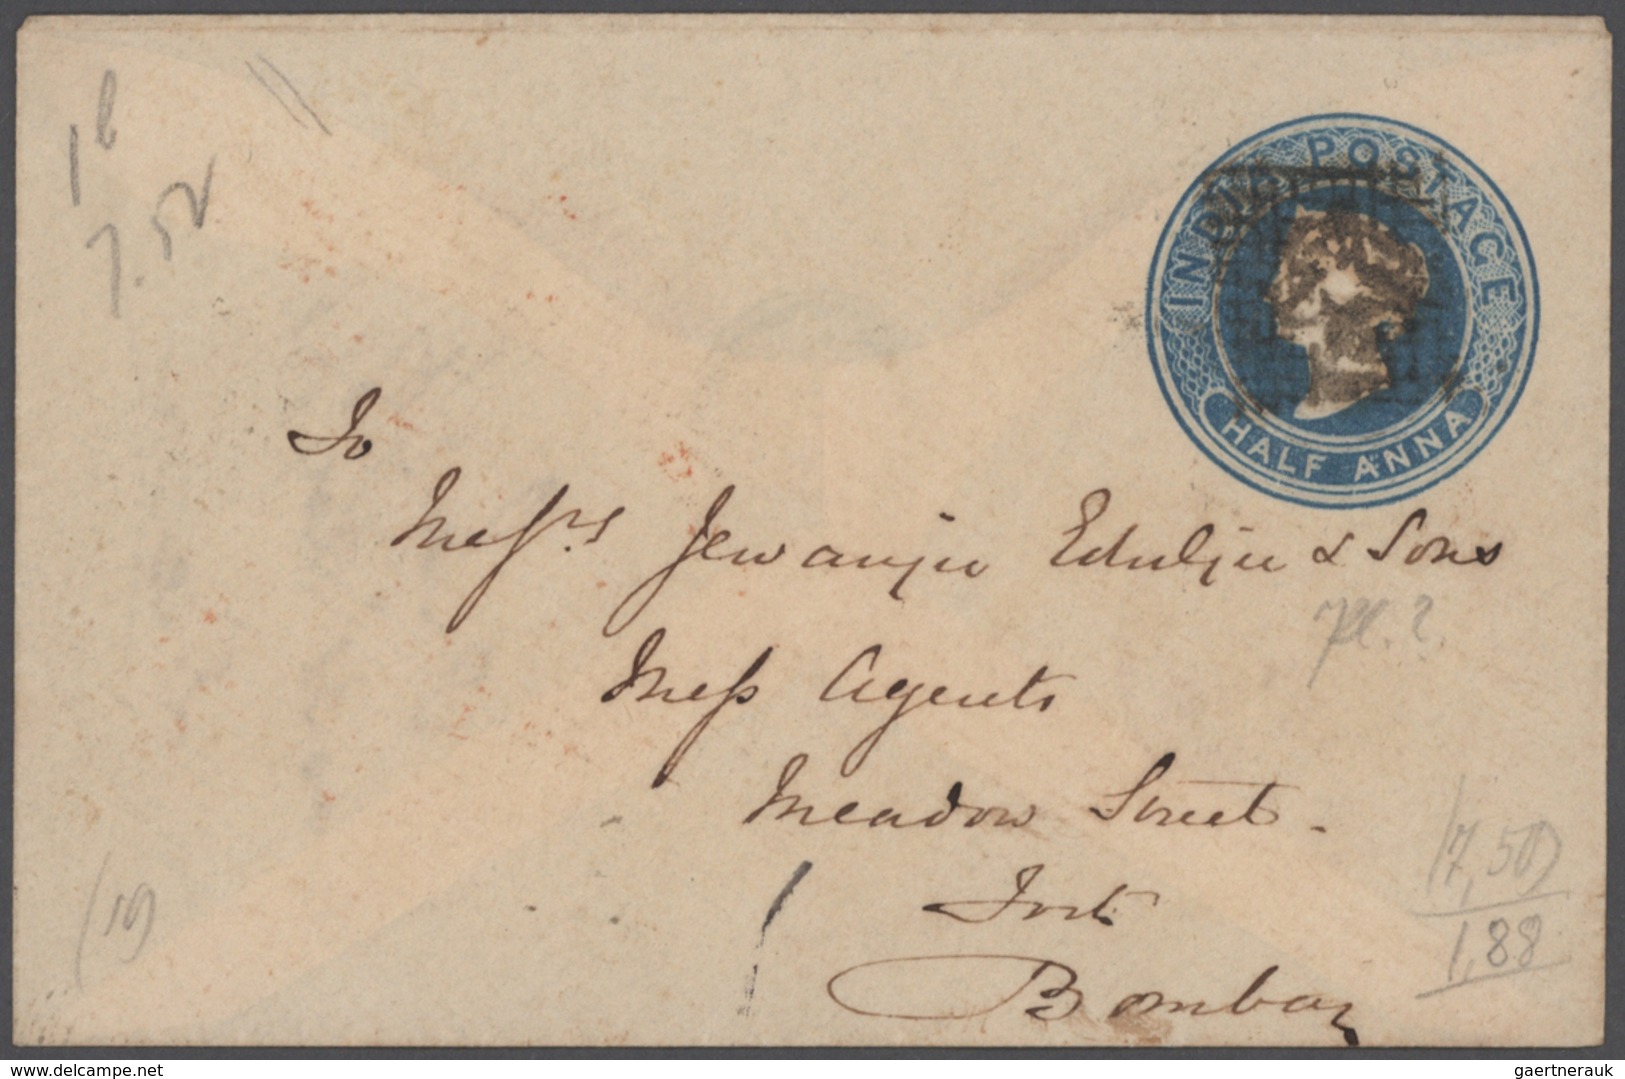 INDIA POSTAGE
HALF ANNA
To
Mess.rs Jewanjee Eduljee & Sons
Mess Agents
Meadow Street.
Fort
Bombay
7.52
(19)
17,50
1,88
delcampe.net
gaertnerauk